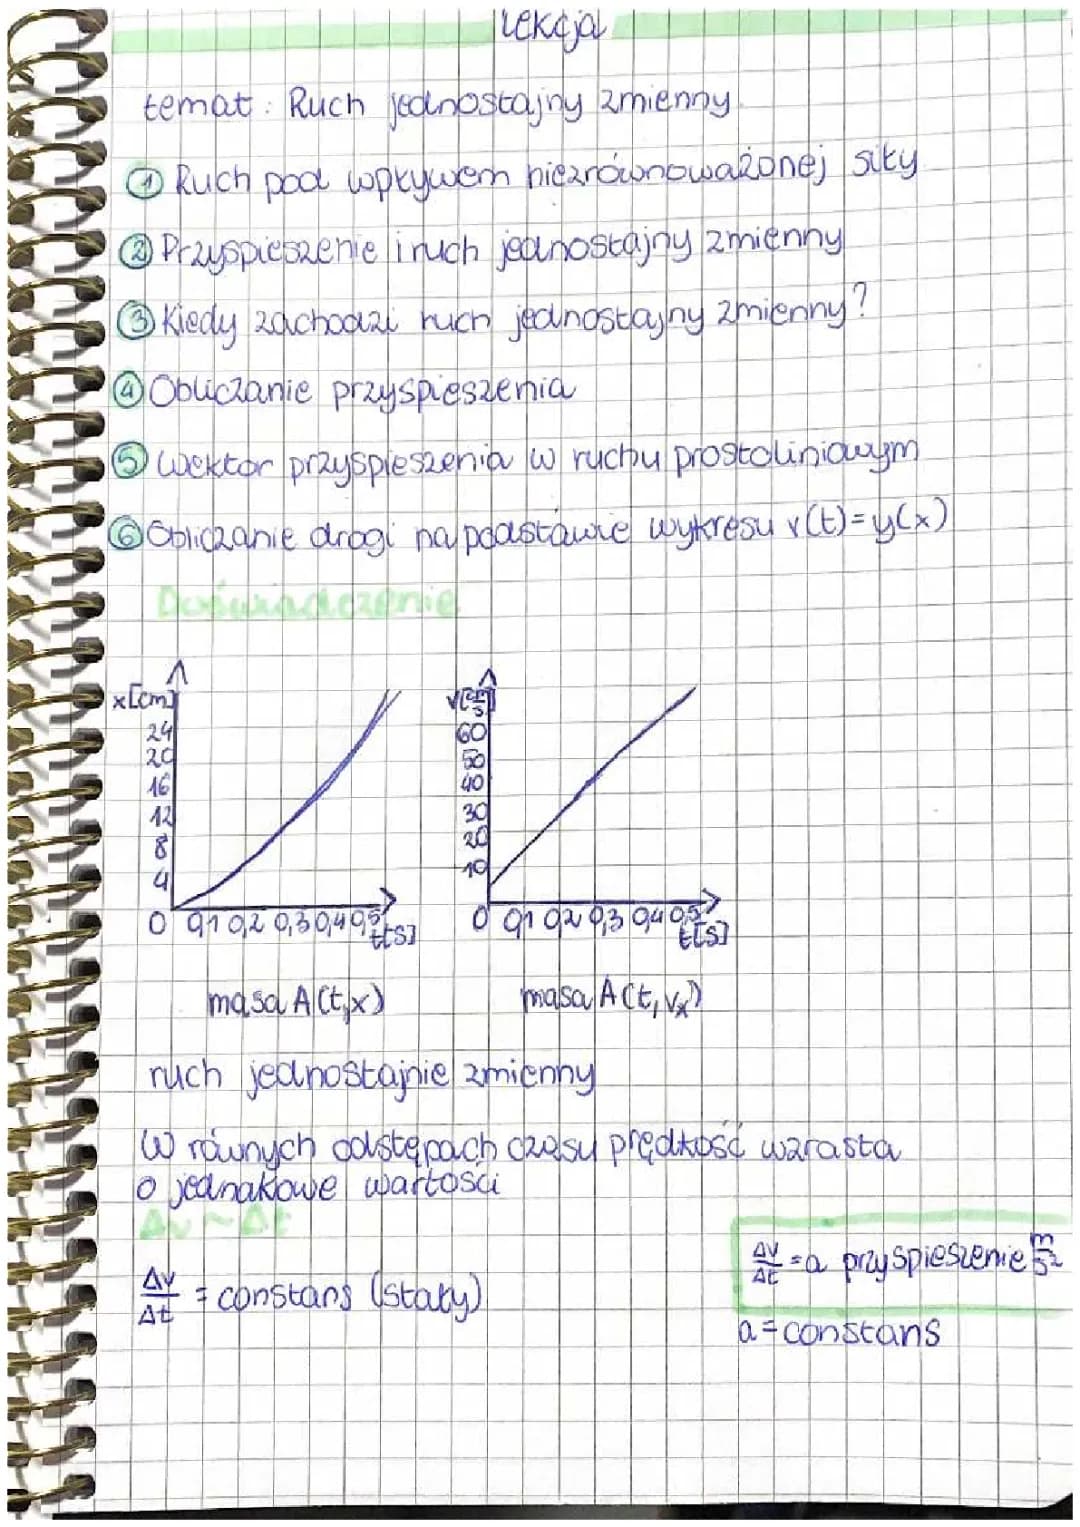 Lekcja
temat: Ruch jednostajny zmienny.
① Ruch pod wpływem niezrównoważonej siły
② Przyspieszenie i ruch jednostajny zmienny
③ Kiedy zachodzi ruch jednostajny zmienny?
④ Obliczanie przyspieszenia
⑤ Wektor przyspieszenia w ruchu prostoliniowym
⑥ Obliczanie drogi na podstawie wykresu v(t)=y(x)
Doświadczenie
x[cm]
24
20
16
12
8
4
0 0,1 0,2 0,3 0,4 0,5
t[s]
v[cm/s]
60
50
40
30
20
10
0 0,1 0,2 0,3 0,4 0,5
t[s]
masa A(t,x)
masa A(t,vₓ)
ruch jednostajnie zmienny
W równych odstępach czasu prędkość wzrasta
o jednakowe wartości
Δv ~ Δt
Δv/Δt = constans (stały)
Δv/Δt = a przyspieszenie m/s²
a = constans